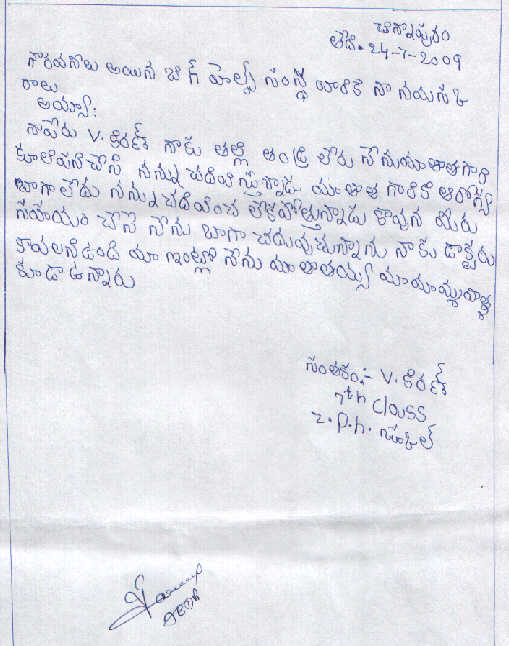 చాగన్నపురం
తేది. 24-7-2009
గౌరవనీలు అయిన బిగ్ హెల్ప్ సంస్థ వారికి నా నమస్క
రాలు
అయ్యా:
నాపేరు V. కిరణ్ నాకు తల్లి తండ్రి లేరు నేనుమాతాతగారి
కూలిపనిచేసి నన్ను చదివిస్తున్నాడు మా తాత గారికి ఆరోగ్యం
బాగా లేదు నన్ను చదివించ లేకపోతున్నాడు కావున మీరు
సహాయం చేసె నేను బాగా చదువుతున్నాను నాకు డాక్టరు
కావలనివుండి మా ఇంట్లో నేను మా తాతయ్య మాయమ్మమ్మ
కూడా ఉన్నారు
సంతకం:- V. కిరణ్
7th Class
Z.P.H. స్కూల్